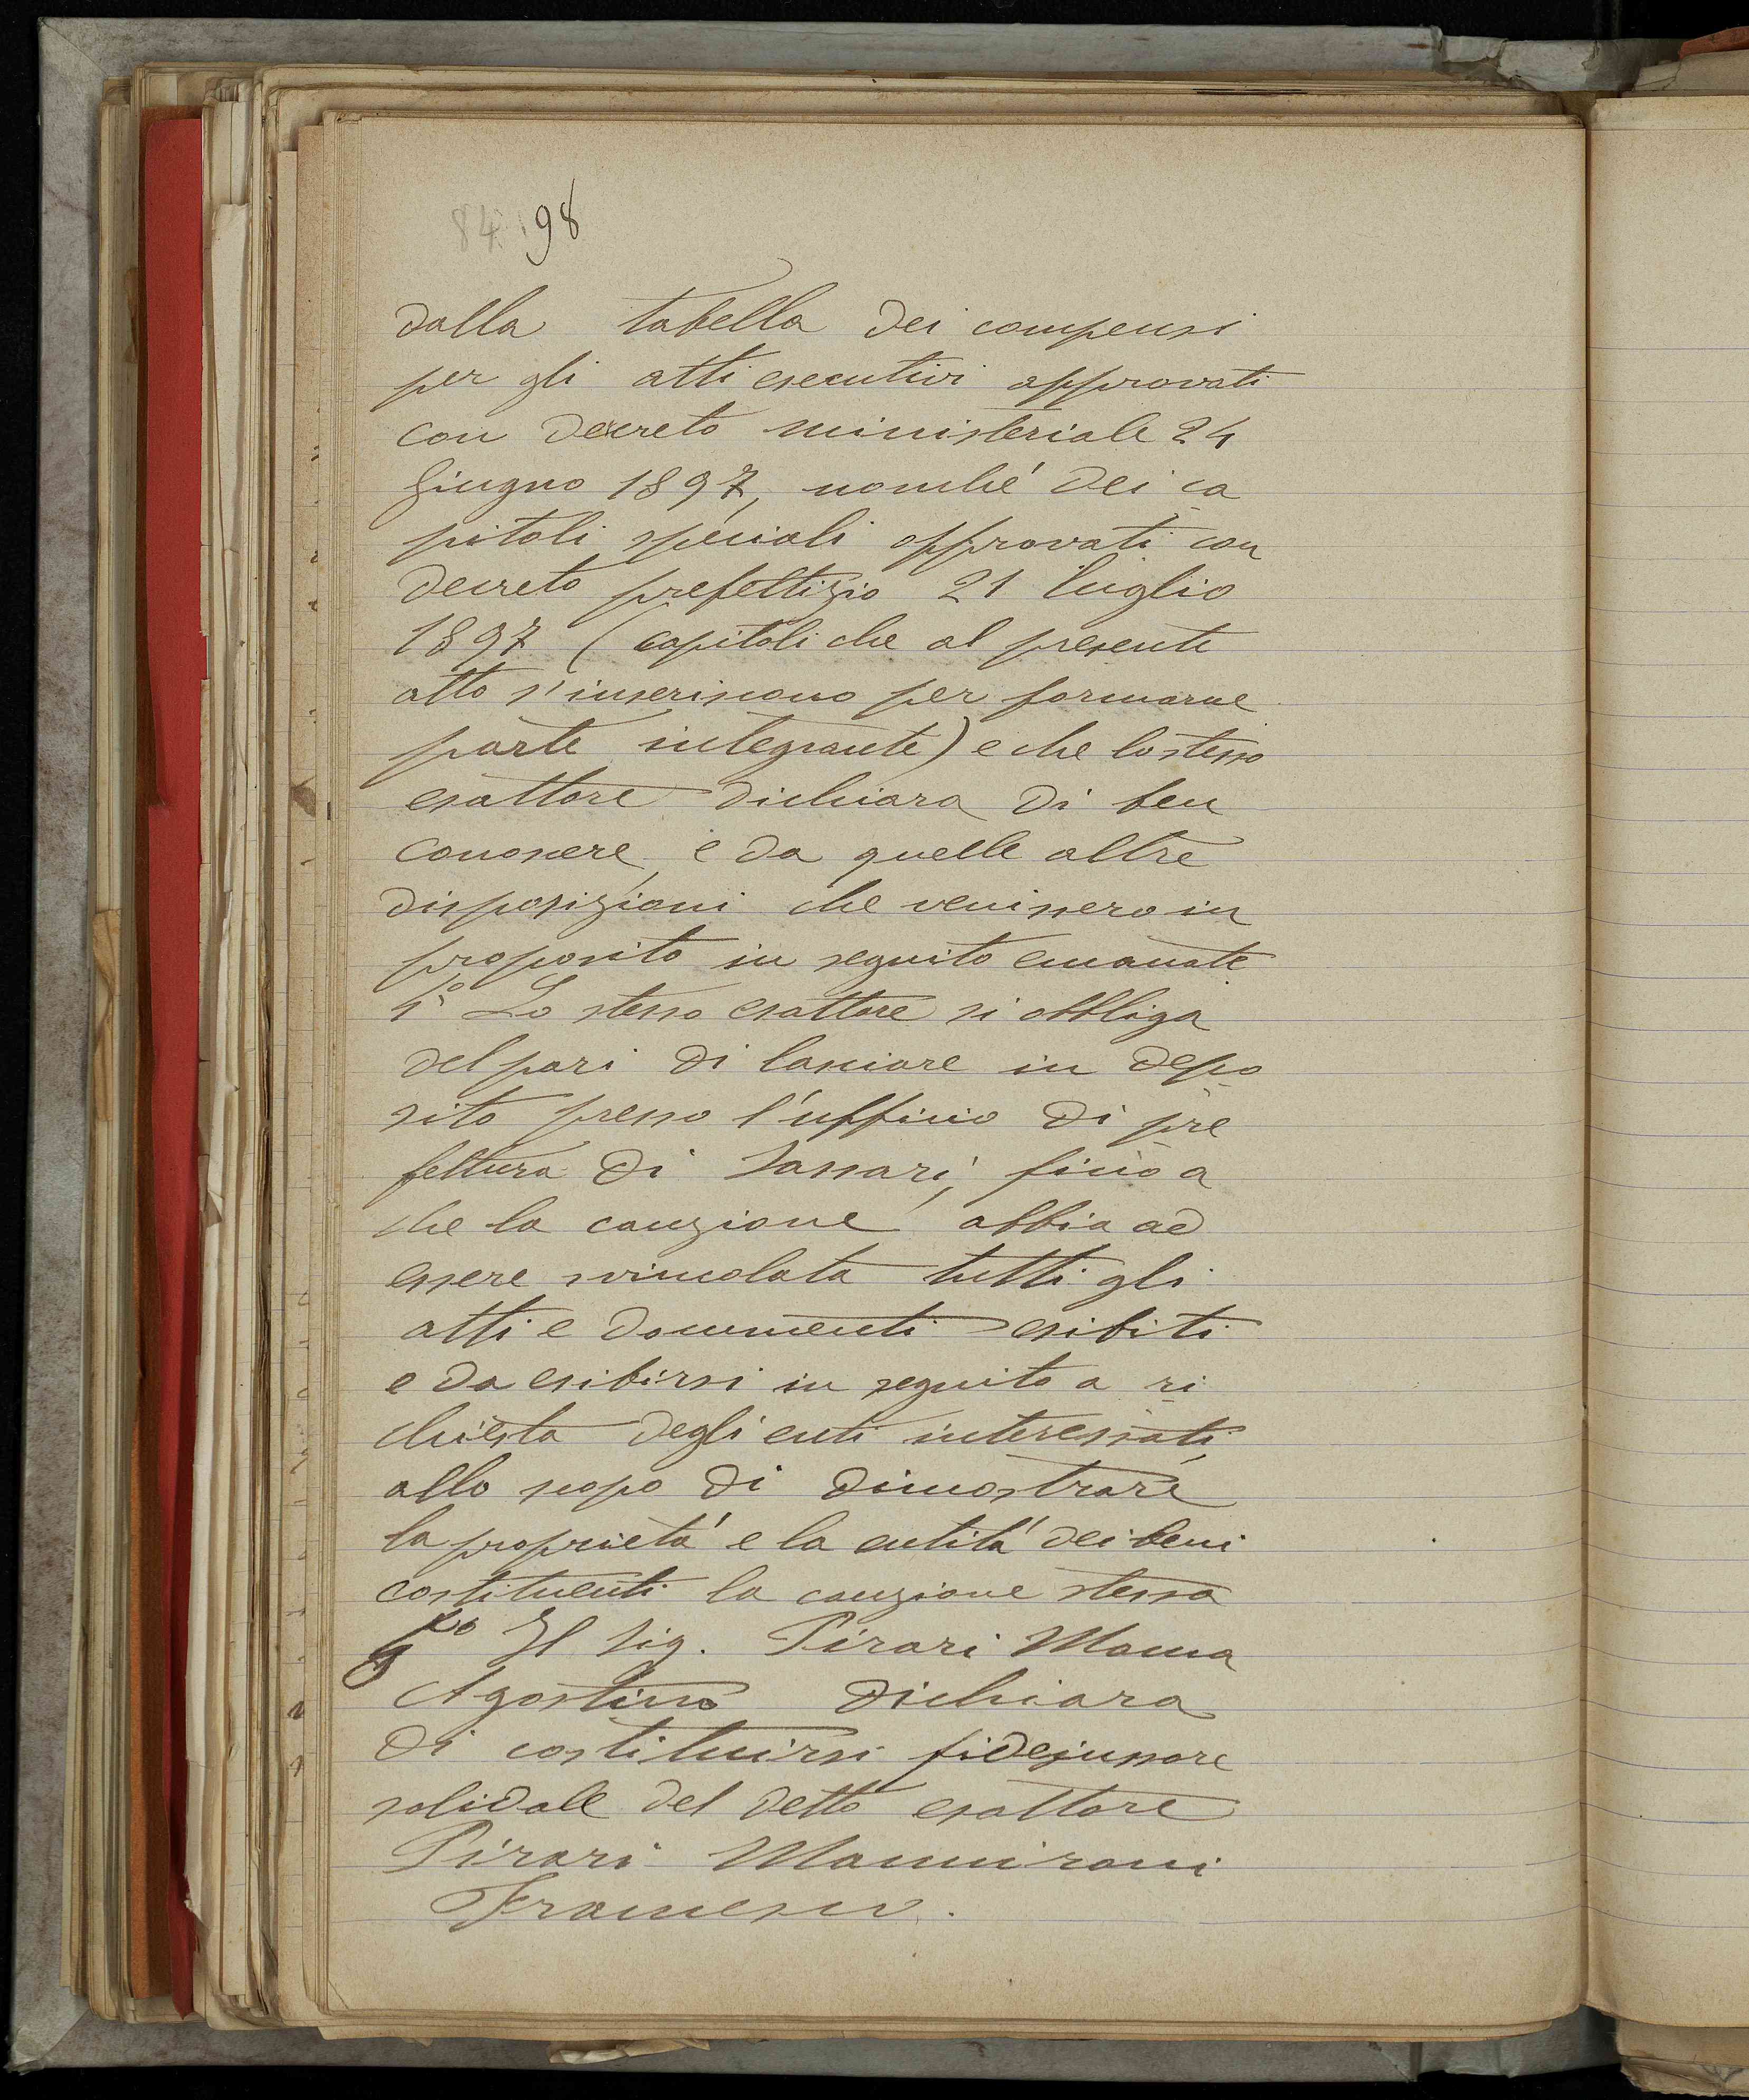 84 98
dalla tabella dei compensi
per gli atti esecutivi approvati
con decreto ministeriale 24
Giugno 1897, nonché dei ca
pitoli speciali approvati con
decreto prefettizio 21 luglio
1897 (capitoli che al presente
atto s'inseriscono per formarne
parte integrante) e che lo stesso
esattore dichiara di ben
conoscere, e da quelle altre
disposizioni che venissero in
proposito in seguito emanate
Lo stesso esattore si obbliga
del pari di lasciare in depo
sito presso l'ufficio di pre
fettura di Sassari, fino a
che la cauzione abbia ad
essere svincolata tutti gli
atti e documenti esibiti
e da esibirsi in seguito a ri
chiesta degli enti interessati,
allo scopo di dimostrare
la proprietá e la entitá dei beni
costituenti la cauzione stessa
Il Sig. Pirari Manca
Agostino dichiara
di costituirsi fidejussore
solidale del detto esattore
Pirari Mannironi
Francesco.